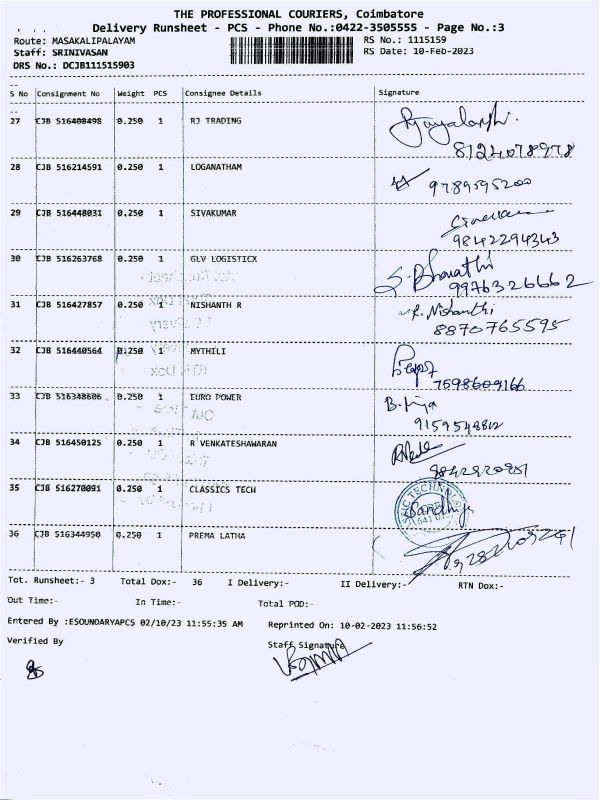 THE PROFESSIONAL COURIERS, Coimbatore
Delivery Runsheet - PCS - Phone No.:0422-3505555 - Page No.:3
Route: MASAKALIPALAYAM RS No.: 1115159
Staff: SRINIVASAN RS Date: 10-Feb-2023
DRS No.: DCJB111515903
S No Consignment No Weight PCS Consignee Details Signature
27 CJB 516408498 0.250 1 RJ TRADING
8124078978
28 CJB 516214591 0.250 1 LOGANATHAM 9789595200
29 CJB 516448031 0.250 1 SIVAKUMAR
9842294343
30 CJB 516263768 0.250 1 GLV LOGISTICX S. Bharathi
9976326662
31 CJB 516427857 0.250 1 NISHANTH R R. Nishanthi
8870765595
32 CJB 516440564 0.250 1 MYTHILI
7598609166
33 CJB 516348606 0.250 1 EURO POWER
34 CJB 516450125 0.250 1 R VENKATESHAWARAN
35 CJB 516270091 0.250 1 CLASSICS TECH Sandhiya
36 CJB 516344950 0.250 1 PREMA LATHA
Tot. Runsheet:- 3 Total Dox:- 36 I Delivery:- II Delivery:- RTN Dox:-
Out Time:- In Time:- Total POD:-
Entered By :ESOUNDARYAPCS 02/10/23 11:55:35 AM Reprinted On: 10-02-2023 11:56:52
Verified By Staff Signature